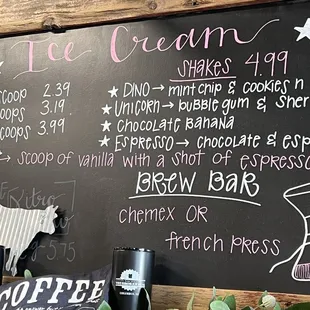 Ice Cream
SHAKES 4.99
SCOOP 2.39
OOPS 3.19
OOPS 3.99
★ DINO → mint chip & cookies n
★ UNICORN → bubble gum & sher
★ CHOCOLATE BANANA
★ ESPRESSO → chocolate & esp
→ scoop of vanilla with a shot of espresso
BREW BAR
chemex OR
french press
Nitro
5.75
COFFEE